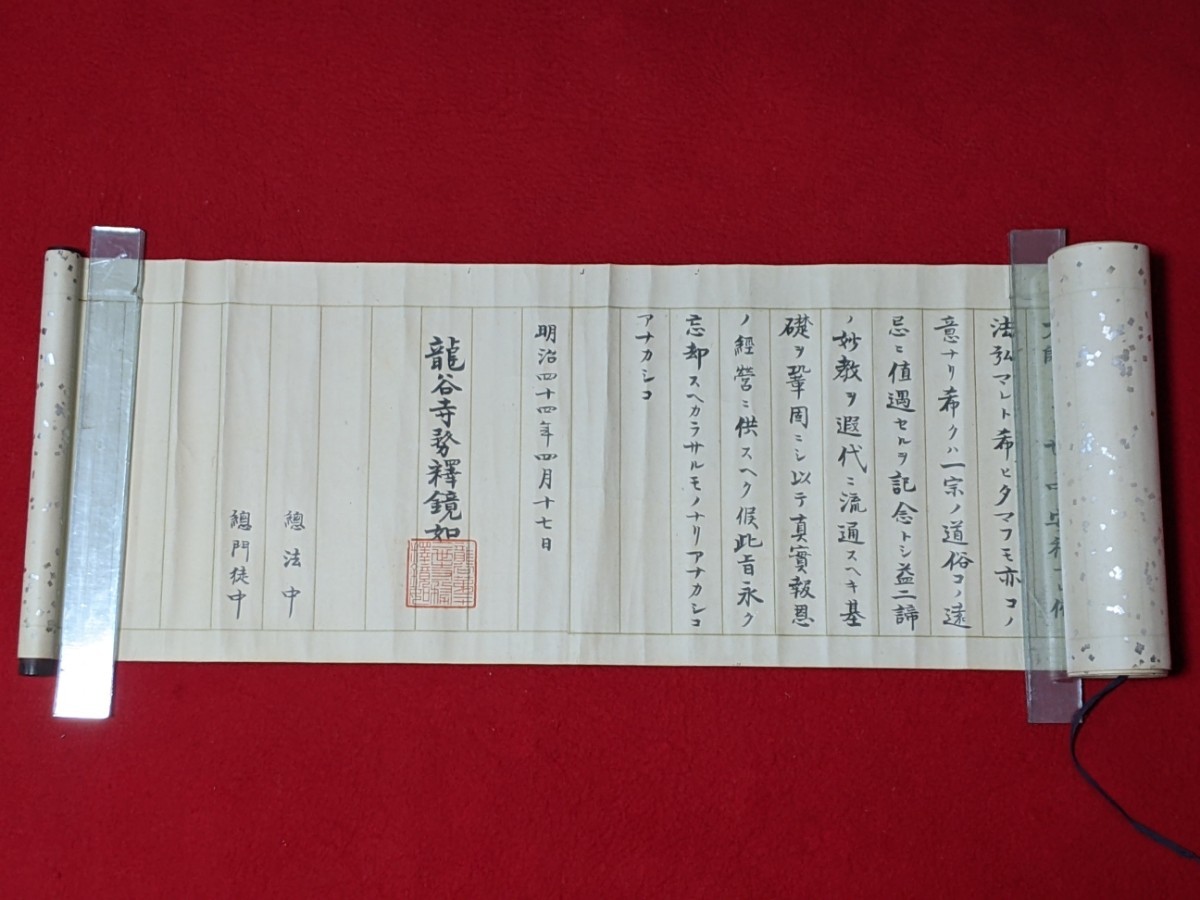 法弘マレト希ヒタマフモ亦コノ
意ナリ希クハ一宗ノ道俗コノ遠
忌ニ値遇セルヲ記念トシ益二諦
ノ妙教ヲ遐代ニ流通スヘキ基
礎ヲ鞏固ニシ以テ真實報恩
ノ經營ニ供スヘク候此旨永ク
忘却スヘカラサルモノナリアナカシコ
アナカシコ
明治四十四年四月十七日
龍谷寺務釋鏡如
總法中
總門徒中